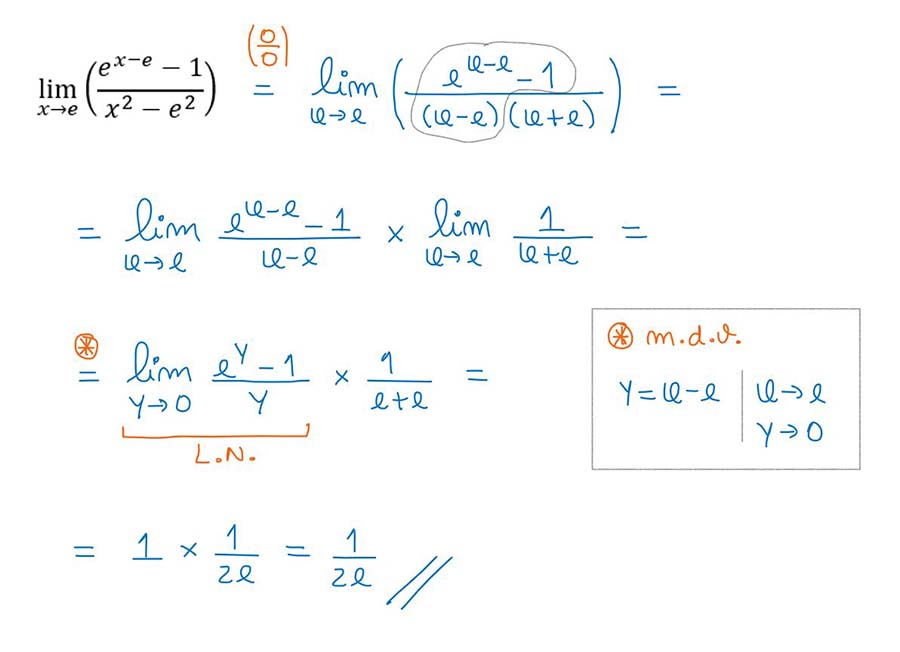 lim x→e ((e^(x−e) − 1)/(x² − e²)) (0/0) = lim x→e ((e^(x−e) − 1)/((x−e)(x+e))) =
= lim x→e (e^(x−e) − 1)/(x−e) × lim x→e 1/(x+e) =
⊛ = lim y→0 (e^y − 1)/y × 1/(e+e) =
L.N.
⊛ m.d.v.
y = x−e | x→e
y→0
= 1 × 1/(2e) = 1/(2e) //